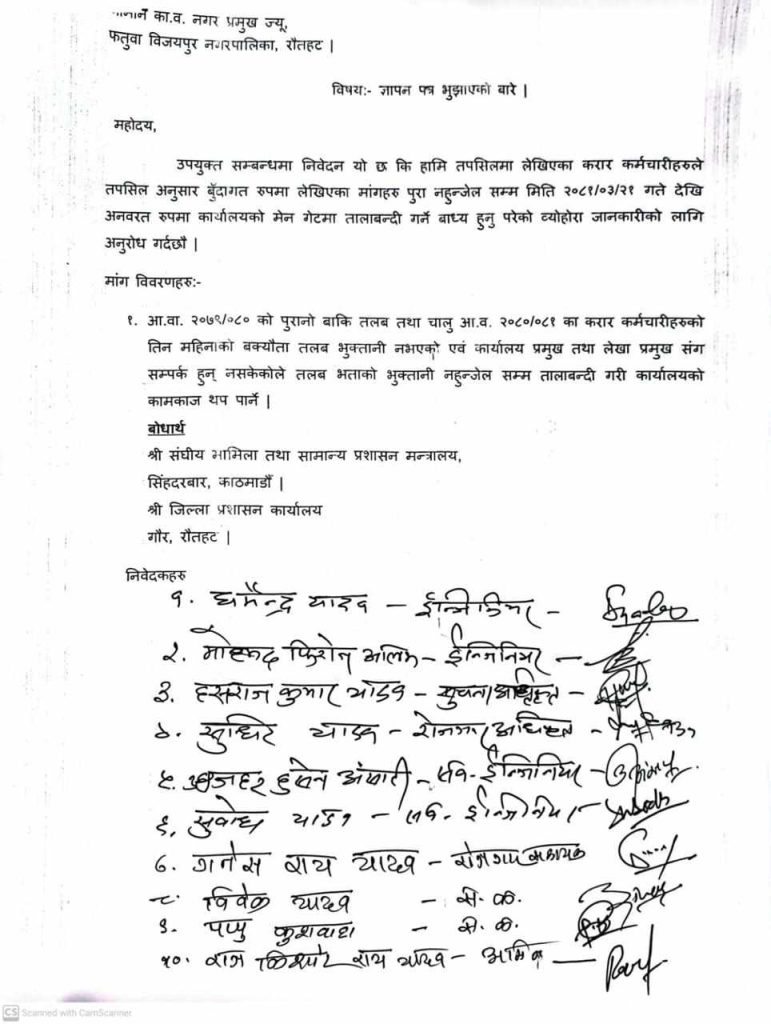 का.व. नगर प्रमुख ज्यू,
फतुवा विजयपुर नगरपालिका, रौतहट |
विषय:- ज्ञापन पत्र भुझाएको बारे |
महोदय,
उपयुक्त सम्बन्धमा निवेदन यो छ कि हामि तपसिलमा लेखिएका करार कर्मचारीहरुले
तपसिल अनुसार बुँदागत रुपमा लेखिएका मांगहरु पुरा नहुन्जेल सम्म मिति २०८१/०३/२१ गते देखि
अनवरत रुपमा कार्यालयको मेन गेटमा तालाबन्दी गर्ने बाध्य हुनु परेको व्योहोरा जानकारीको लागि
अनुरोध गर्दछौ |
मांग विवरणहरु:-
१. आ.वा. २०७९/०८० को पुरानो बाकि तलब तथा चालु आ.व. २०८०/०८१ का करार कर्मचारीहरुको
तिन महिनाको बक्यौता तलब भुक्तानी नभएको एवं कार्यालय प्रमुख तथा लेखा प्रमुख संग
सम्पर्क हुन् नसकेकोले तलब भताको भुक्तानी नहुन्जेल सम्म तालाबन्दी गरी कार्यालयको
कामकाज थप पार्ने |
बोधार्थ
श्री संघीय मामिला तथा सामान्य प्रशासन मन्त्रालय,
सिंहदरबार, काठमाडौँ |
श्री जिल्ला प्रशासन कार्यालय
गौर, रौतहट |
निवेदकहरु
१. धर्मेन्द्र यादव - ईन्जिनियर -
२. फिरोज आलम - ईन्जिनियर -
३. हसराज कुमार यादव - सुचना अधिकृत -
४. सुधिर यादव - रोजगार अधिकृत -
५. अजहर हुसेन अंसारी - सव-ईन्जिनियर -
६. सुवोध यादव - सव-ईन्जिनियर -
७. गनेस राय यादव - रोजगार सहायक
८. विवेक यादव -
९. पप्पु कुशवाहा -
१०. राज किशोर राय यादव - अमिन -
CS Scanned with CamScanner